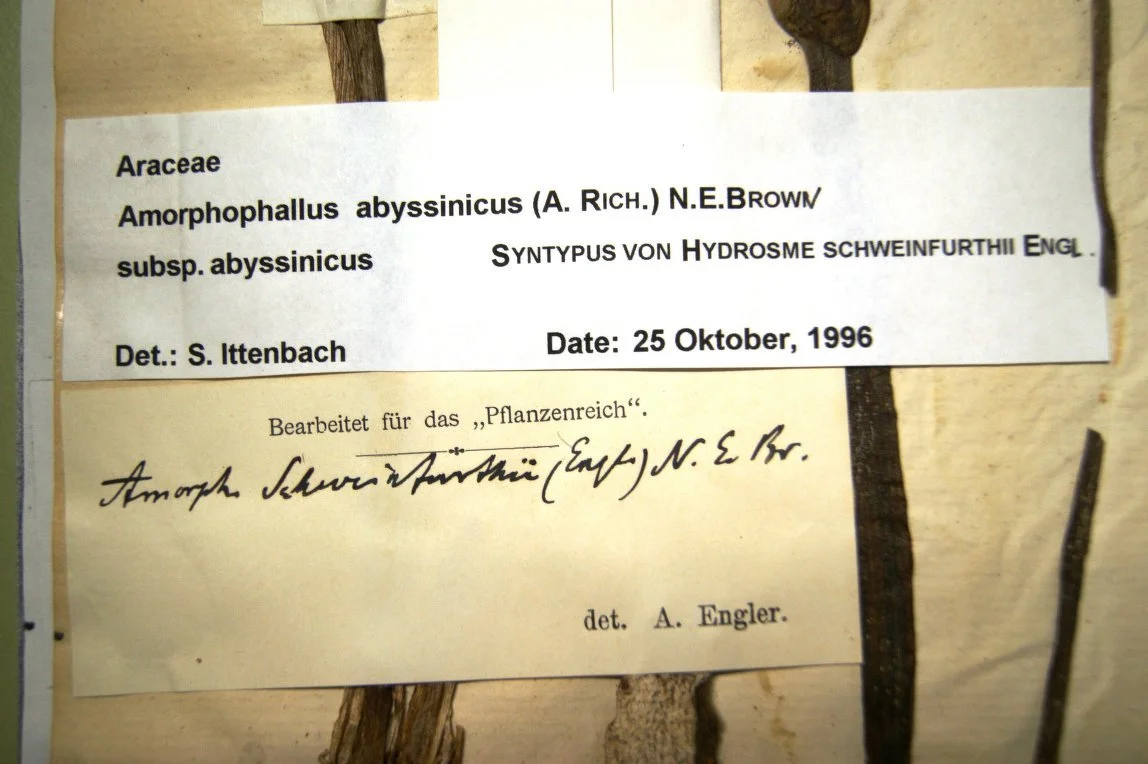 Araceae
Amorphophallus abyssinicus (A. RICH.) N.E.BROWN/
subsp. abyssinicus SYNTYPUS VON HYDROSME SCHWEINFURTHII ENGL.
Det.: S. Ittenbach Date: 25 Oktober, 1996
Bearbeitet für das „Pflanzenreich“.
Amorph. Schweinfurthii (Engl.) N. E. Br.
det. A. Engler.